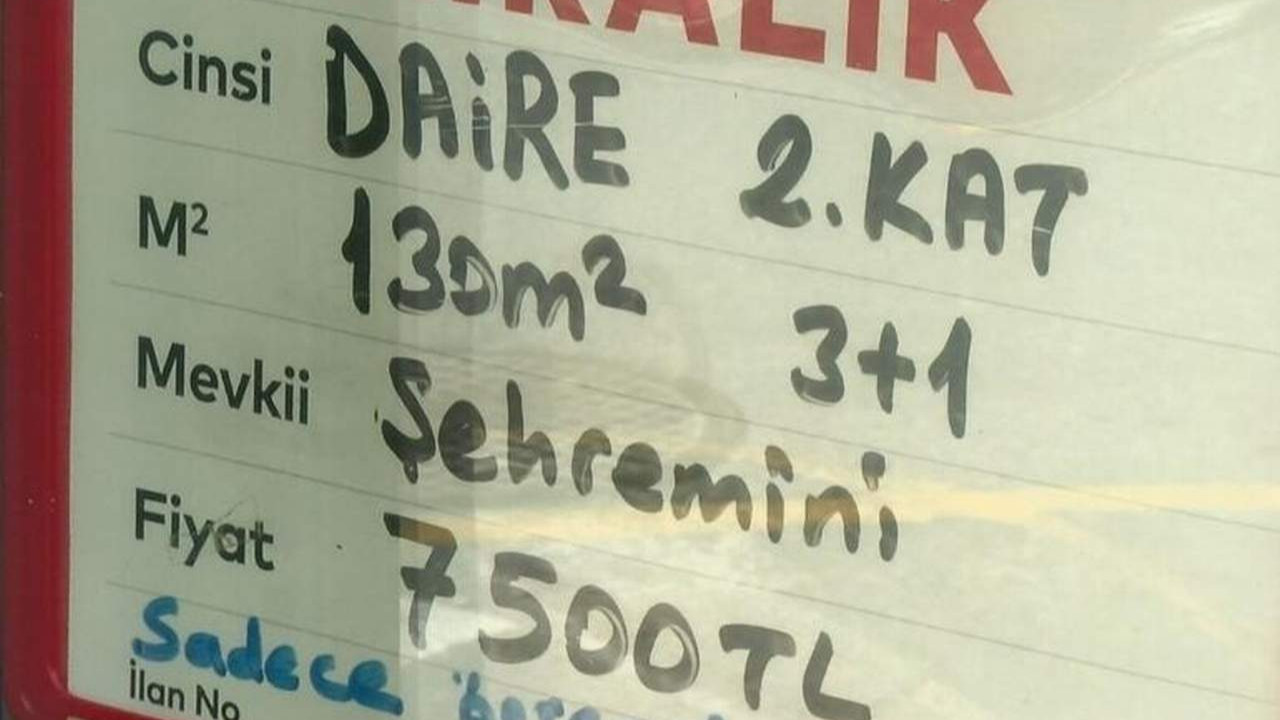 Cinsi DAİRE 2.KAT
M² 130m² 3+1
Mevkii Şehremini
Fiyat 7500TL
Sadece
İlan No